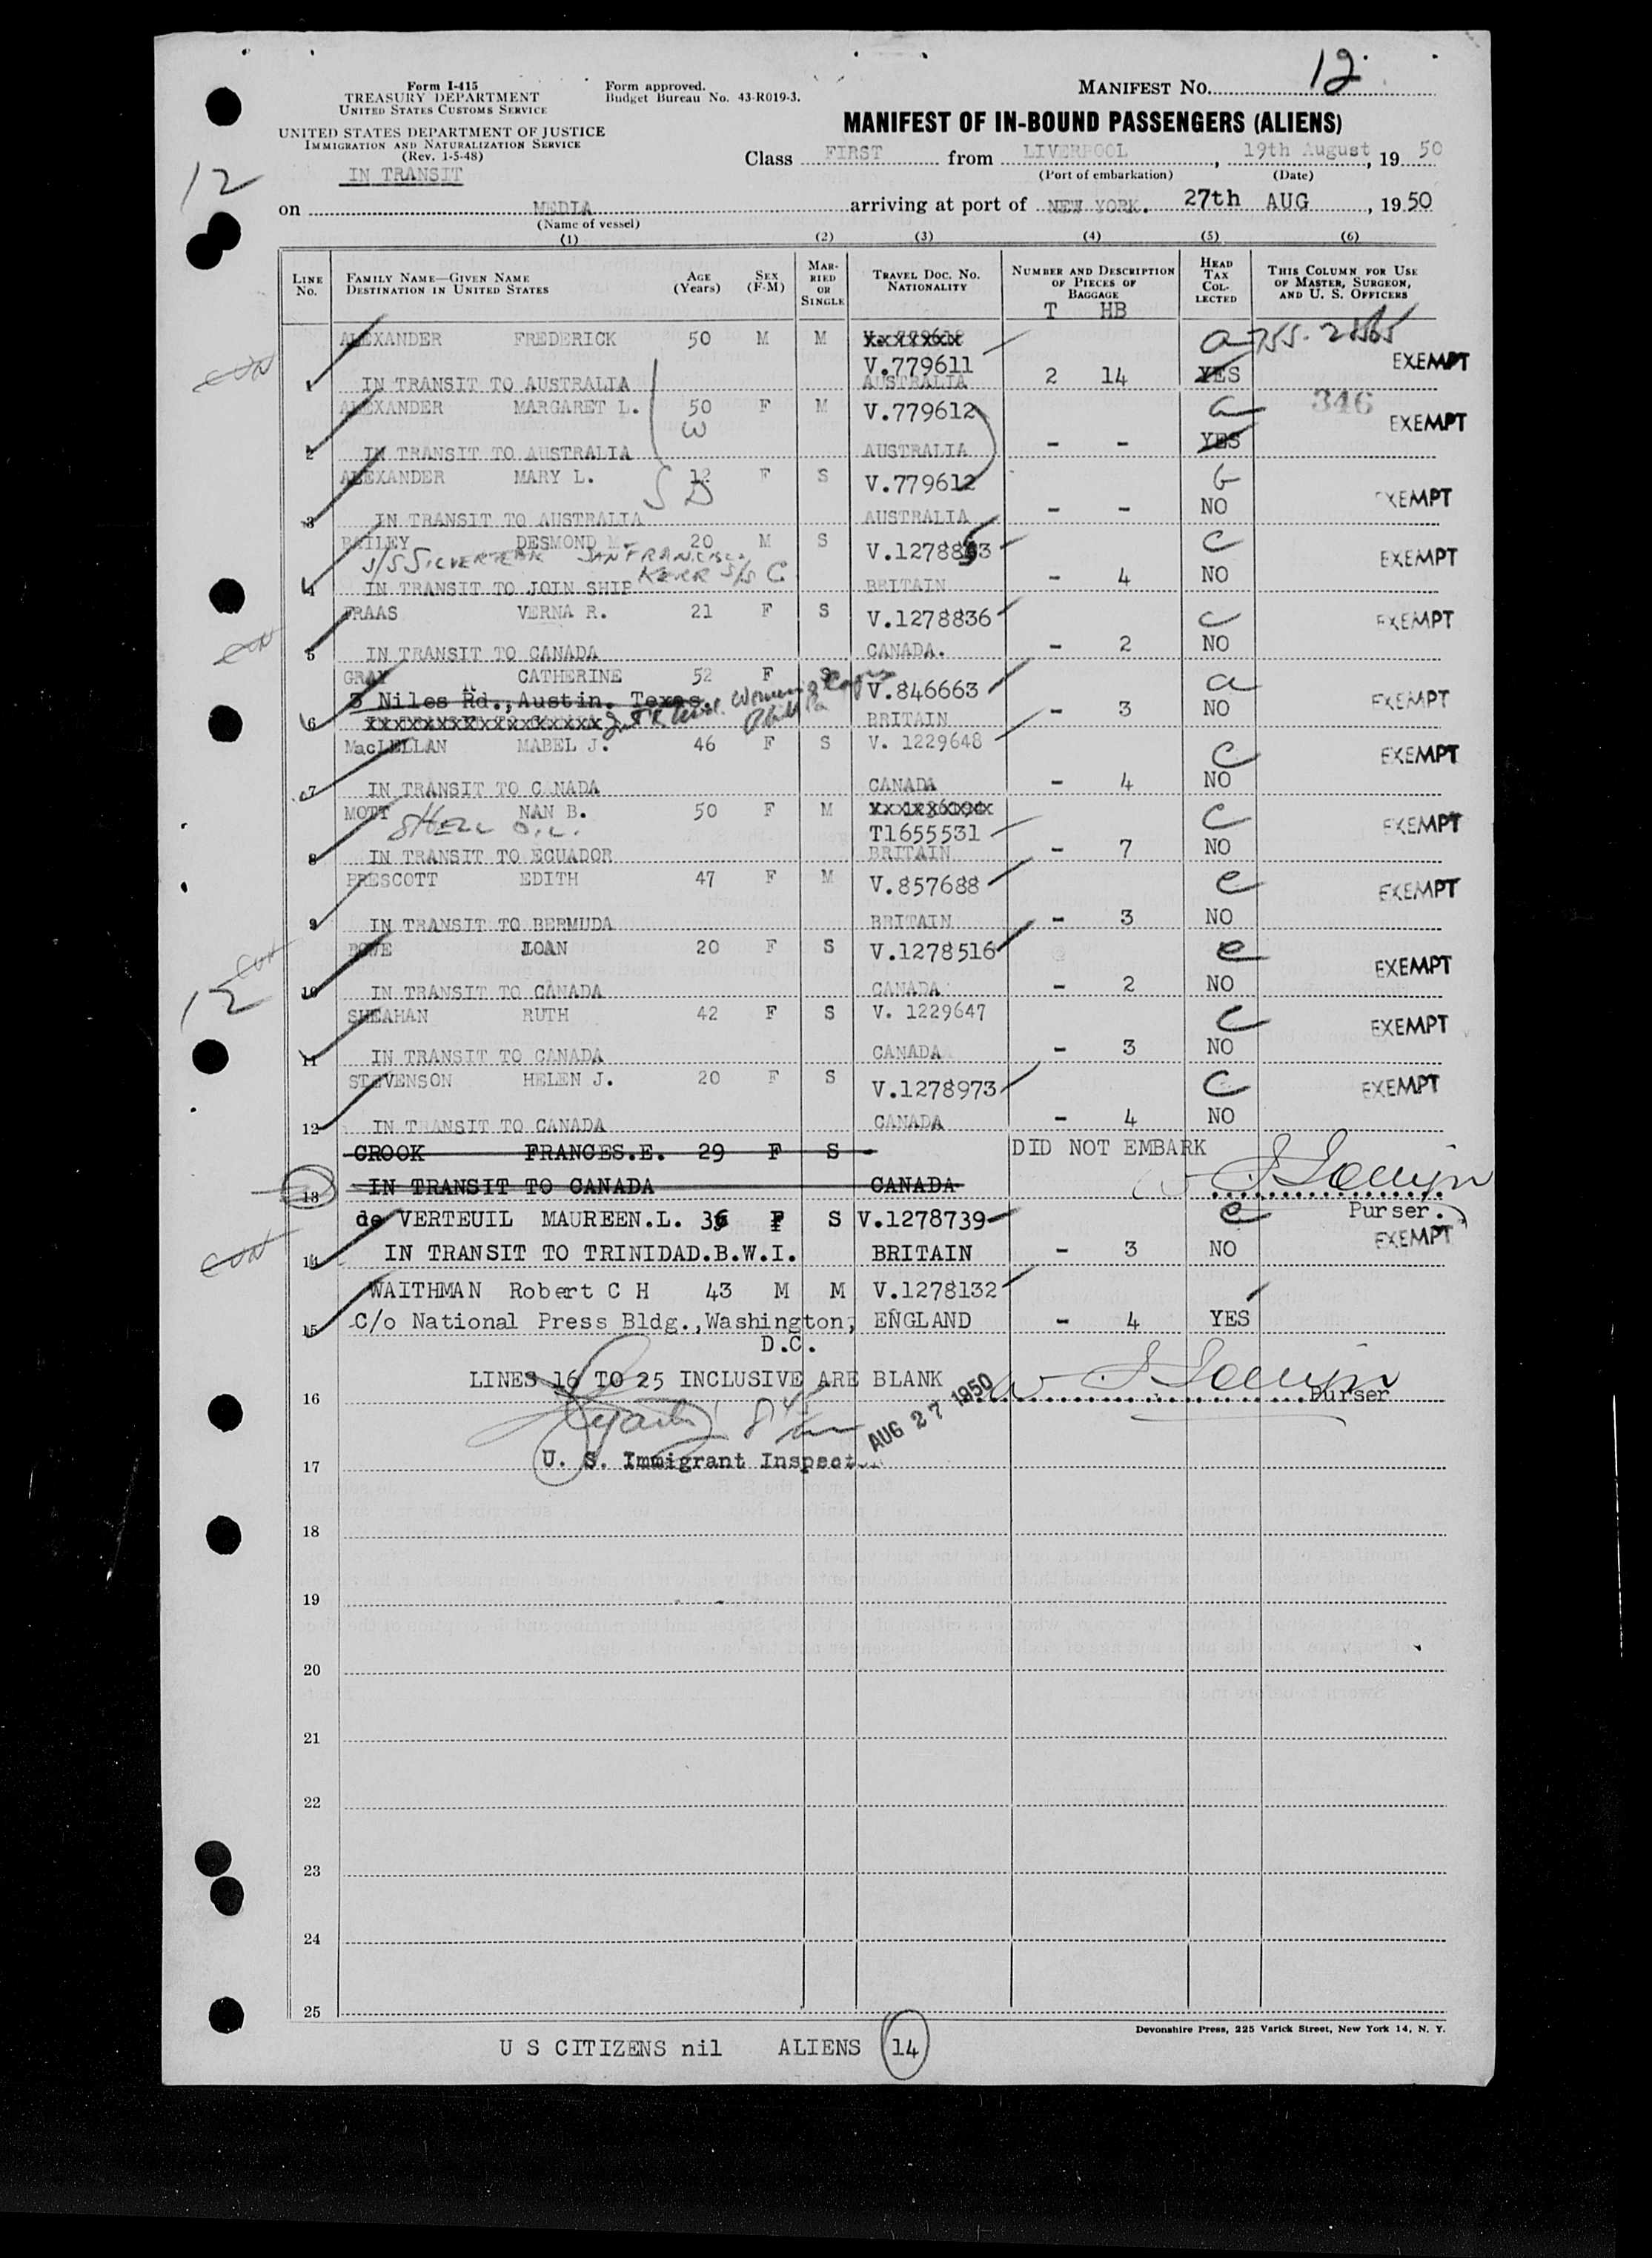 Form I-415
TREASURY DEPARTMENT
UNITED STATES CUSTOMS SERVICE
UNITED STATES DEPARTMENT OF JUSTICE
IMMIGRATION AND NATURALIZATION SERVICE
(Rev. 1-5-48)
IN TRANSIT
Form approved.
Budget Bureau No. 43-R019-3.
MANIFEST No. 12
MANIFEST OF IN-BOUND PASSENGERS (ALIENS)
Class FIRST from LIVERPOOL, 19th August, 1950
(Port of embarkation) (Date)
12
on MEDIA arriving at port of NEW YORK. 27th AUG, 1950
(Name of vessel)
(1) (2) (3) (4) (5) (6)
LINE No. FAMILY NAME—GIVEN NAME DESTINATION IN UNITED STATES AGE (Years) SEX (F-M) MARRIED OR SINGLE TRAVEL DOC. No. NATIONALITY NUMBER AND DESCRIPTION OF PIECES OF BAGGAGE HEAD TAX COLLECTED THIS COLUMN FOR USE OF MASTER, SURGEON, AND U. S. OFFICERS
T HB
ALEXANDER FREDERICK 50 M M a
V.779611 EXEMPT
1 IN TRANSIT TO AUSTRALIA AUSTRALIA 2 14 YES
ALEXANDER MARGARET L. 50 F M V.779612 a 346 EXEMPT
W
2 IN TRANSIT TO AUSTRALIA AUSTRALIA - - YES
ALEXANDER MARY L. 12 F S V.779612 b EXEMPT
S D
3 IN TRANSIT TO AUSTRALIA AUSTRALIA - - NO
BAILEY DESMOND M. 20 M S V.1278853 c EXEMPT
SAN FRANCISCO
4 IN TRANSIT TO JOIN SHIP KERR S/S C. BRITAIN - 4 NO
FRAAS VERNA R. 21 F S V.1278836 c EXEMPT
5 IN TRANSIT TO CANADA CANADA. - 2 NO
GRAY CATHERINE 52 F S V.846663 a EXEMPT
3 Niles Rd., Austin. Texas.
6 BRITAIN - 3 NO
MacLELLAN MABEL J. 46 F S V. 1229648 c EXEMPT
7 IN TRANSIT TO CANADA CANADA - 4 NO
MOTT NAN B. 50 F M c EXEMPT
SHELL OIL. T1655531
8 IN TRANSIT TO ECUADOR BRITAIN - 7 NO
PRESCOTT EDITH 47 F M V.857688 e EXEMPT
9 IN TRANSIT TO BERMUDA BRITAIN - 3 NO
ROWE JOAN 20 F S V.1278516 e EXEMPT
10 IN TRANSIT TO CANADA CANADA - 2 NO
12
SHEAHAN RUTH 42 F S V. 1229647 c EXEMPT
11 IN TRANSIT TO CANADA CANADA - 3 NO
STEVENSON HELEN J. 20 F S V.1278973 C EXEMPT
12 IN TRANSIT TO CANADA CANADA - 4 NO
CROOK FRANCES.E. 29 F S - DID NOT EMBARK
13 IN TRANSIT TO CANADA CANADA
Purser.
de VERTEUIL MAUREEN.L. 36 F S V.1278739 e EXEMPT
14 IN TRANSIT TO TRINIDAD.B.W.I. BRITAIN - 3 NO
WAITHMAN Robert C H 43 M M V.1278132
15 C/o National Press Bldg.,Washington, ENGLAND - 4 YES
D.C.
LINES 16 TO 25 INCLUSIVE ARE BLANK
16 AUG 27 1950 Purser
17 U. S. Immigrant Inspector
18
19
20
21
22
23
24
25
Devonshire Press, 225 Varick Street, New York 14, N. Y.
U S CITIZENS nil ALIENS 14